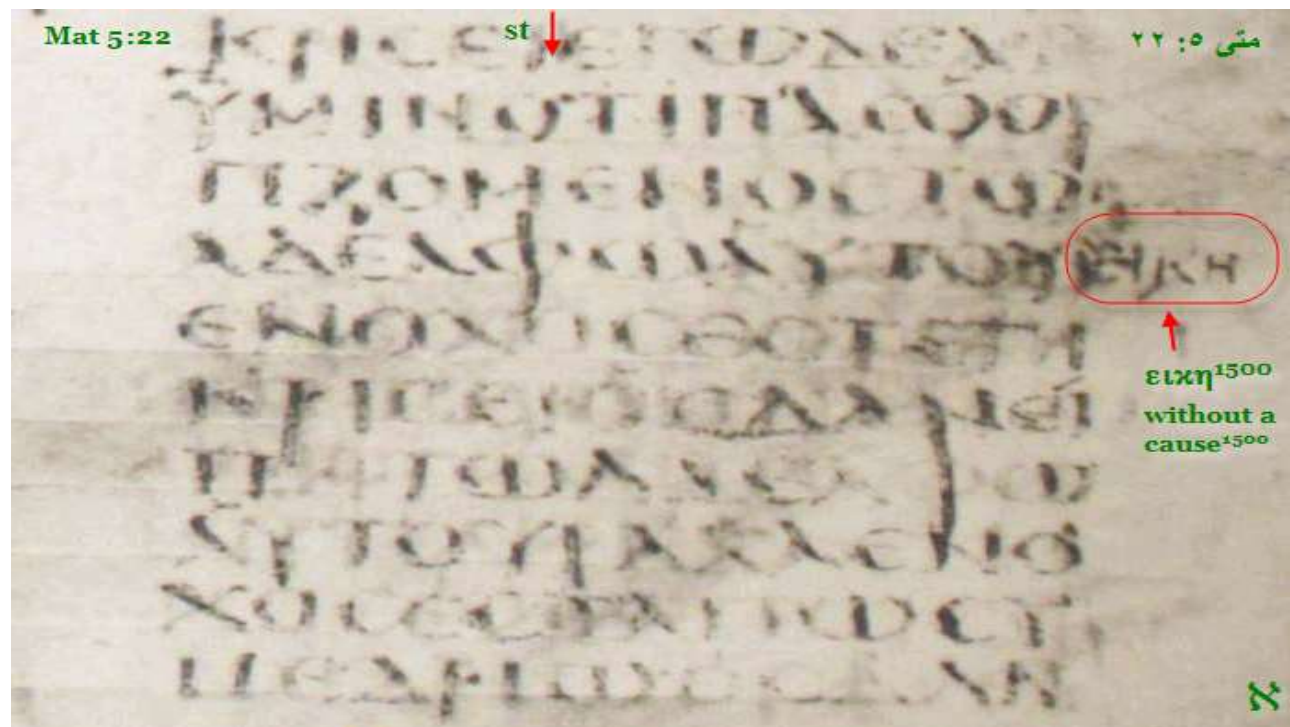 Mat 5:22
st
متى ٥: ٢٢
ΚΡΙCΕΙΕΓΩΔΕΛΕΓ
ΥΜΙΝΟΤΙΠΑCΟΟΡ
ΓΙΖΟΜΕΝΟCΤΩ
ΑΔΕΛΦΩΑΥΤΟΥ ΕΙΚΗ
ΕΝΟΧΟCΕCΤΕΤΗ
ΚΡΙCΕΙΟCΔΑΝΕΙ
ΠΗΤΩΑΔΕΛΦΩ
ΑΥΤΟΥΡΑΧΑΕΝΟ
ΧΟCΕCΤΑΙΤΩCΥ
ΝΕΔΡΙΩΟCΔΑΝ
εικη¹⁵⁰⁰
without a
cause¹⁵⁰⁰
א